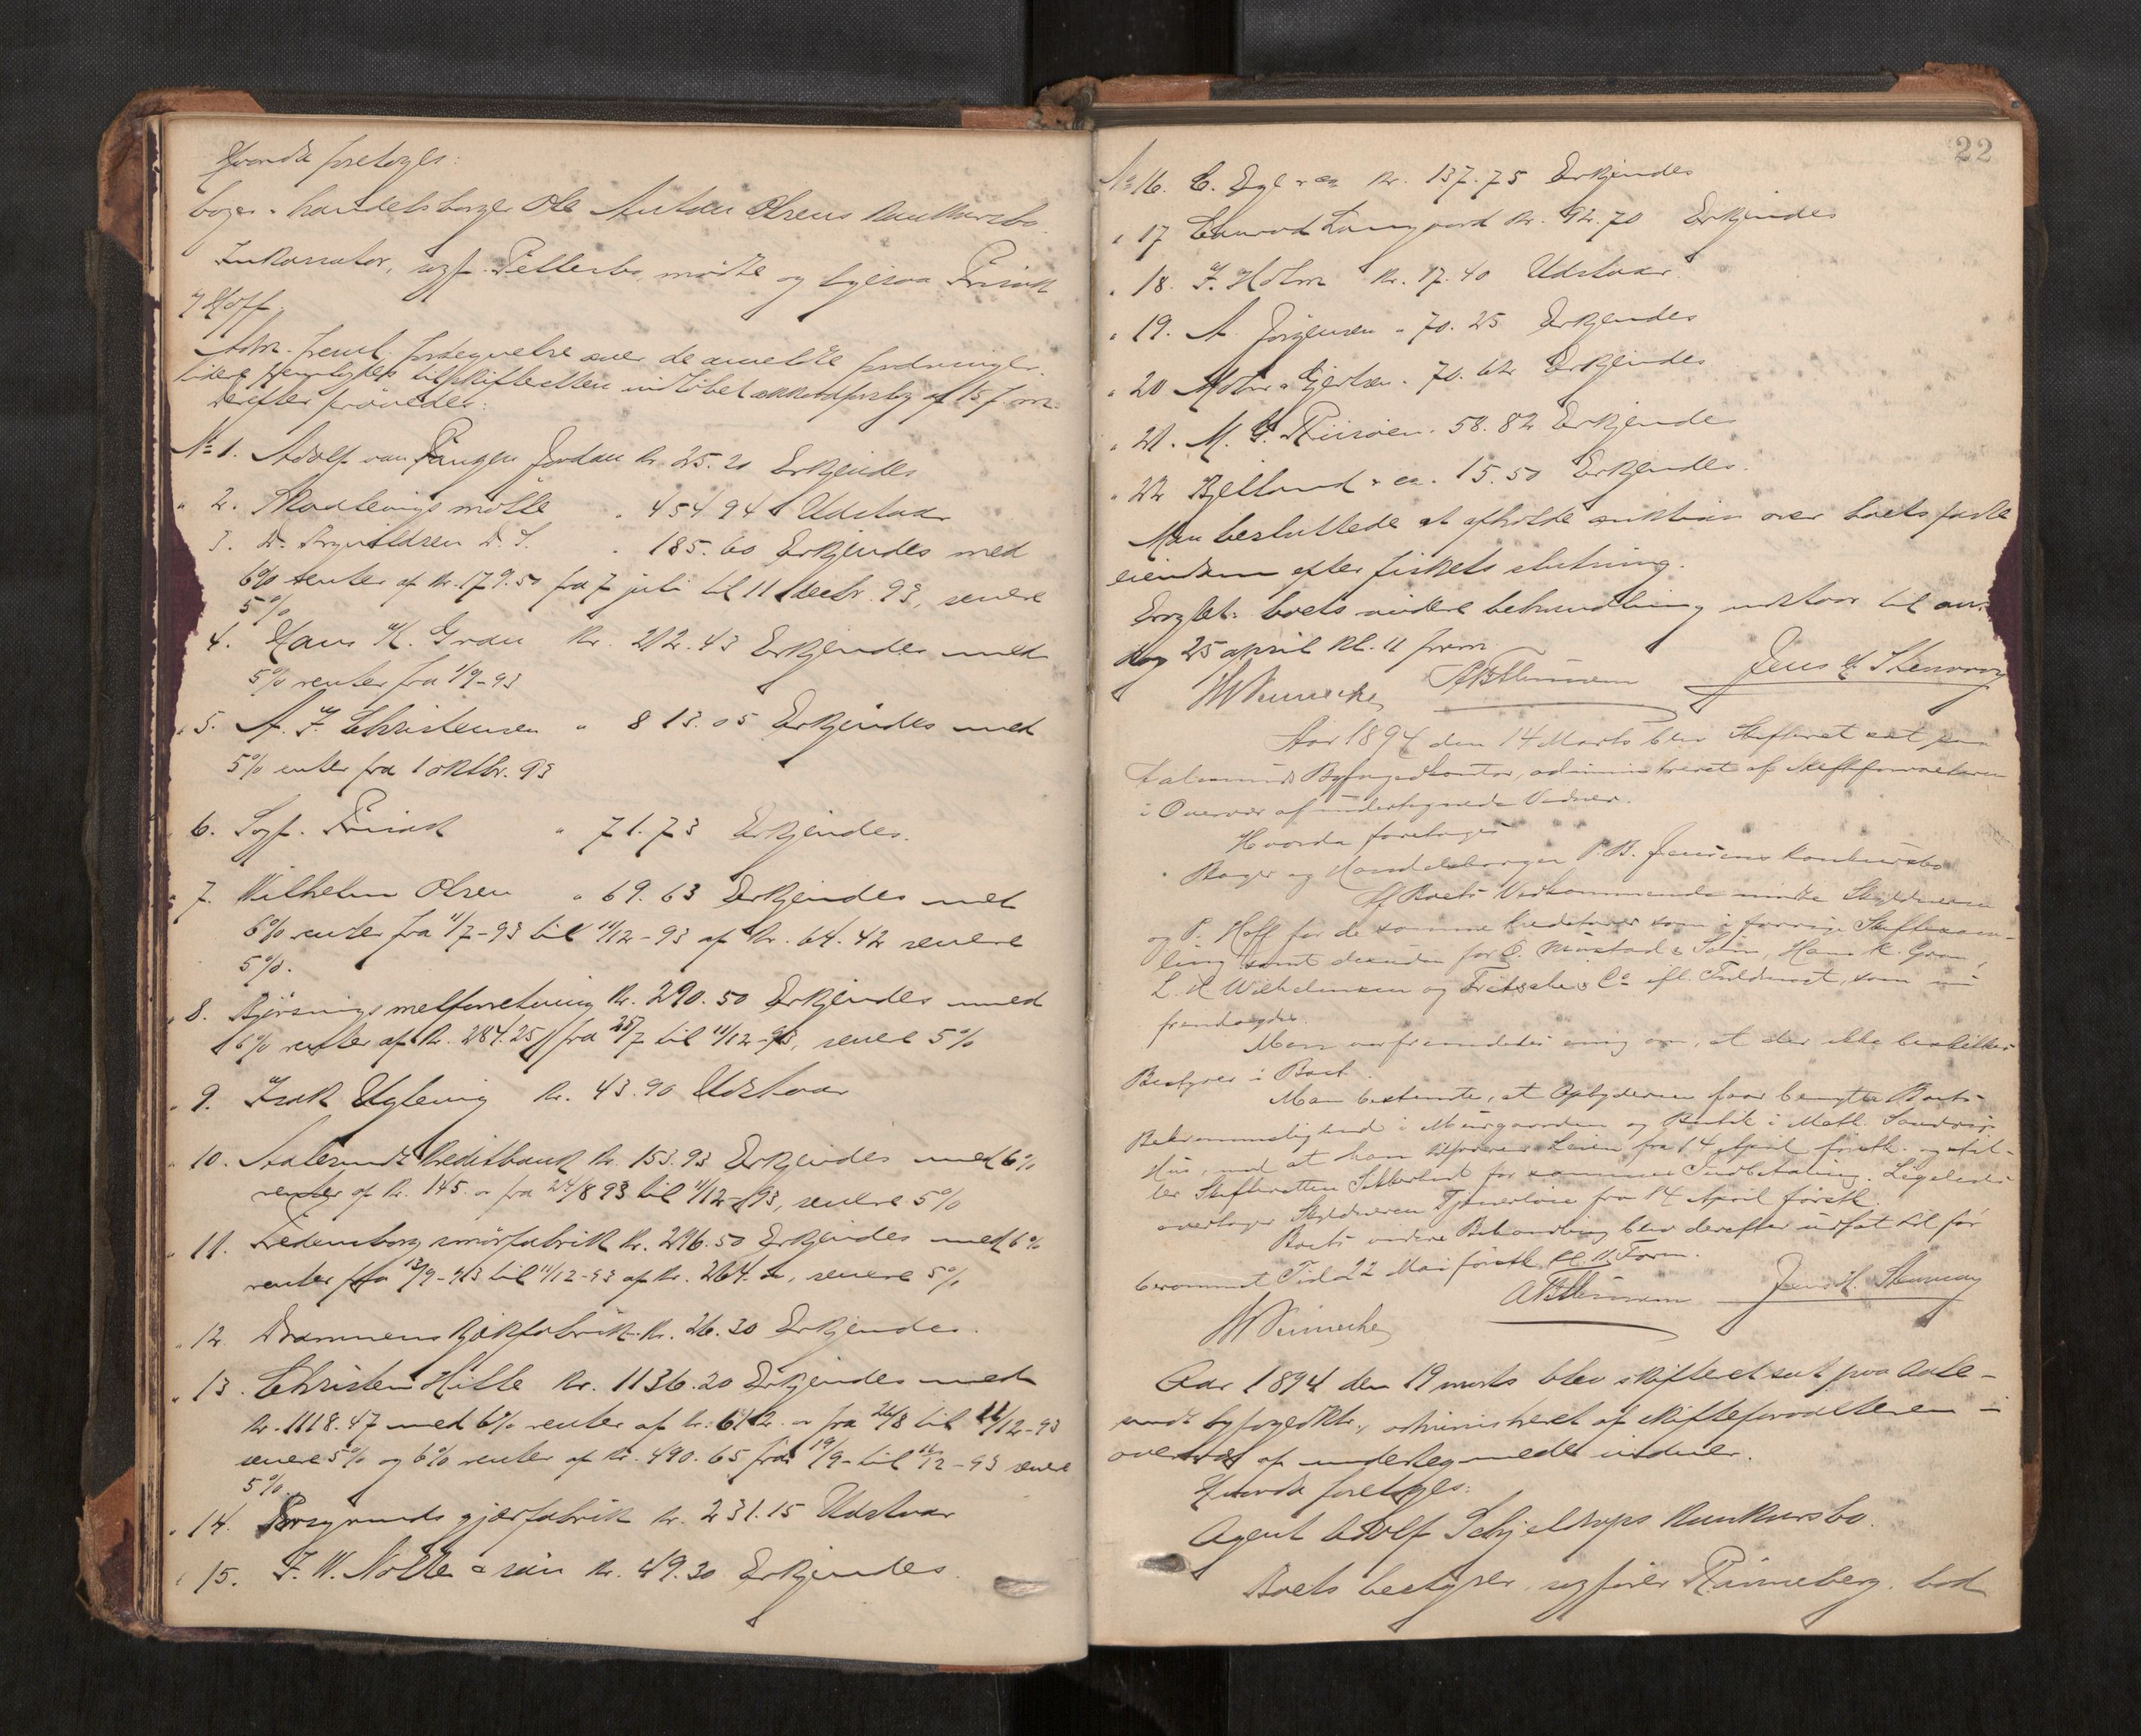 Hvorda foretoges:
bager & handelsborger Ole Anton Olsens konkursbo.
Inkassator, sagf. mødte og ligesaa Frisak
& Hoff.
Adm. freml. fortegnelse over de anmeldte fordringer.
af 15 f. m.
Derefter prøvedes:
No 1. Adolf van Jordan kr. 25.20 Erkjendes
" 2. mølle " 454 94 Udstaar
3. D. D. S. " 185.60 Erkjendes med
6% renter af kr. 179.50 fra 7 juli til 11 decbr. 93, senere
5%
4. Hans K. Gran kr. 212.43 Erkjendes med
5% renter fra 1/9-93
" 5. A. F. Christensen " 813.05 Erkjendes med
5% renter fra 1 oktbr. 93
" 6. Sagf. Frisak " 71.73 Erkjendes.
" 7. Wilhelm Olsen " 69.63 Erkjendes med
6% renter fra 11/7-93 til 11/12-93 af kr. 64.42 senere
5%.
" 8. Bjørsvigs melforretning kr. 290.50 Erkjendes med
6% renter af kr. 284.25 fra 25/7 til 11/12-93, senere 5%
" 9. Isak kr. 43.90 Udstaar
" 10. Aalesunds Kreditbank kr. 153.93 Erkjendes med 6%
renter af kr. 145. " fra 24/8 93 til 11/12-93, senere 5%
" 11. Fredensborg smørfabrik kr. 296.50 Erkjendes med 6%
renter fra 13/9-93 til 11/12-93 af kr. 264. ", senere 5%
" 12. Drammens kjækfabrik kr. 26.30 Erkjendes.
" 13. Christen Hille kr. 1136.20 Erkjendes med
kr. 1118.47 med 6% renter af kr. 612. " fra 26/8 til 11/12-93
senere 5% og 6% renter af kr. 490.65 fra 19/9 til 11/12-93 senere
5%.
" 14. Porsgrunds gjærfabrik kr. 231.15 Udstaar
" 15. F. W. Nolte & søn kr. 49.30 Erkjendes.
22
No 16. C. & co kr. 137.75 Erkjendes
" 17 Conrad Langaard kr. 92.70 Erkjendes
" 18. F. Holm kr. 17.40 Udstaar
" 19. A. Jørgensen " 70.25 Erkjendes
" 20 Holm & Gjertsen " 70.62 Erkjendes
" 21. M. G. " 58.82 Erkjendes
" 22 Bjelland & co. 15.50 Erkjendes.
Man besluttede at afholde auktion over boets faste
eiendom efter fiskets slutning.
boets videre behandling udstaar til ons-
dag 25 april kl. 11 form.
Jens H. Stenvaag
Aar 1894 den 14 Marts blev Skifteret sat paa
Aalesunds Byfogedkontor, administreret af Skifteforvalteren
i Overvær af undertegnede Vidner.
Hvorda foretoges
Bager og Handelsborger P. B. Jensens Konkursbo
Af Boets Vedkommende mødte Skyldneren
og P. Hoff for de samme Kreditorer som i forrige Skiftesam-
ling samt desuden for O. Mustad & Søn, Hans K. Gran,
L. H. Wilhelmsen og Fritzsche & Co efl. Fuldmagt, som
fremlagdes.
Man var fremdeles enig om, at der ikke beskikkes
Bestyrer i Boet.
Man bestemte, at Opbyderen faar benytte Boets
Bekvemmelighed i Murgaarden og Butik i Madl.
Hus, mod at han Leien fra 14 April førstk. og stil-
ler Skifteretten Sikkerhed for sammes Indbetaling. Ligeledes
overtager Skyldneren fra 14 April førstk.
Boets videre Behandling blev derefter udsat til før
berammet Tid 22 Mai førstk. Kl. 11 Form.
Jens H. Stenvaag
Aar 1894 den 19 marts blev skifteret sat paa Aale-
sunds byfogedktr., administreret af skifteforvalteren i
overvær af undertegnede vidner.
Hvorda foretoges:
Agent Adolf Schjeldrups konkursbo.
Boets bestyrer, sagfører Rønneberg, bad